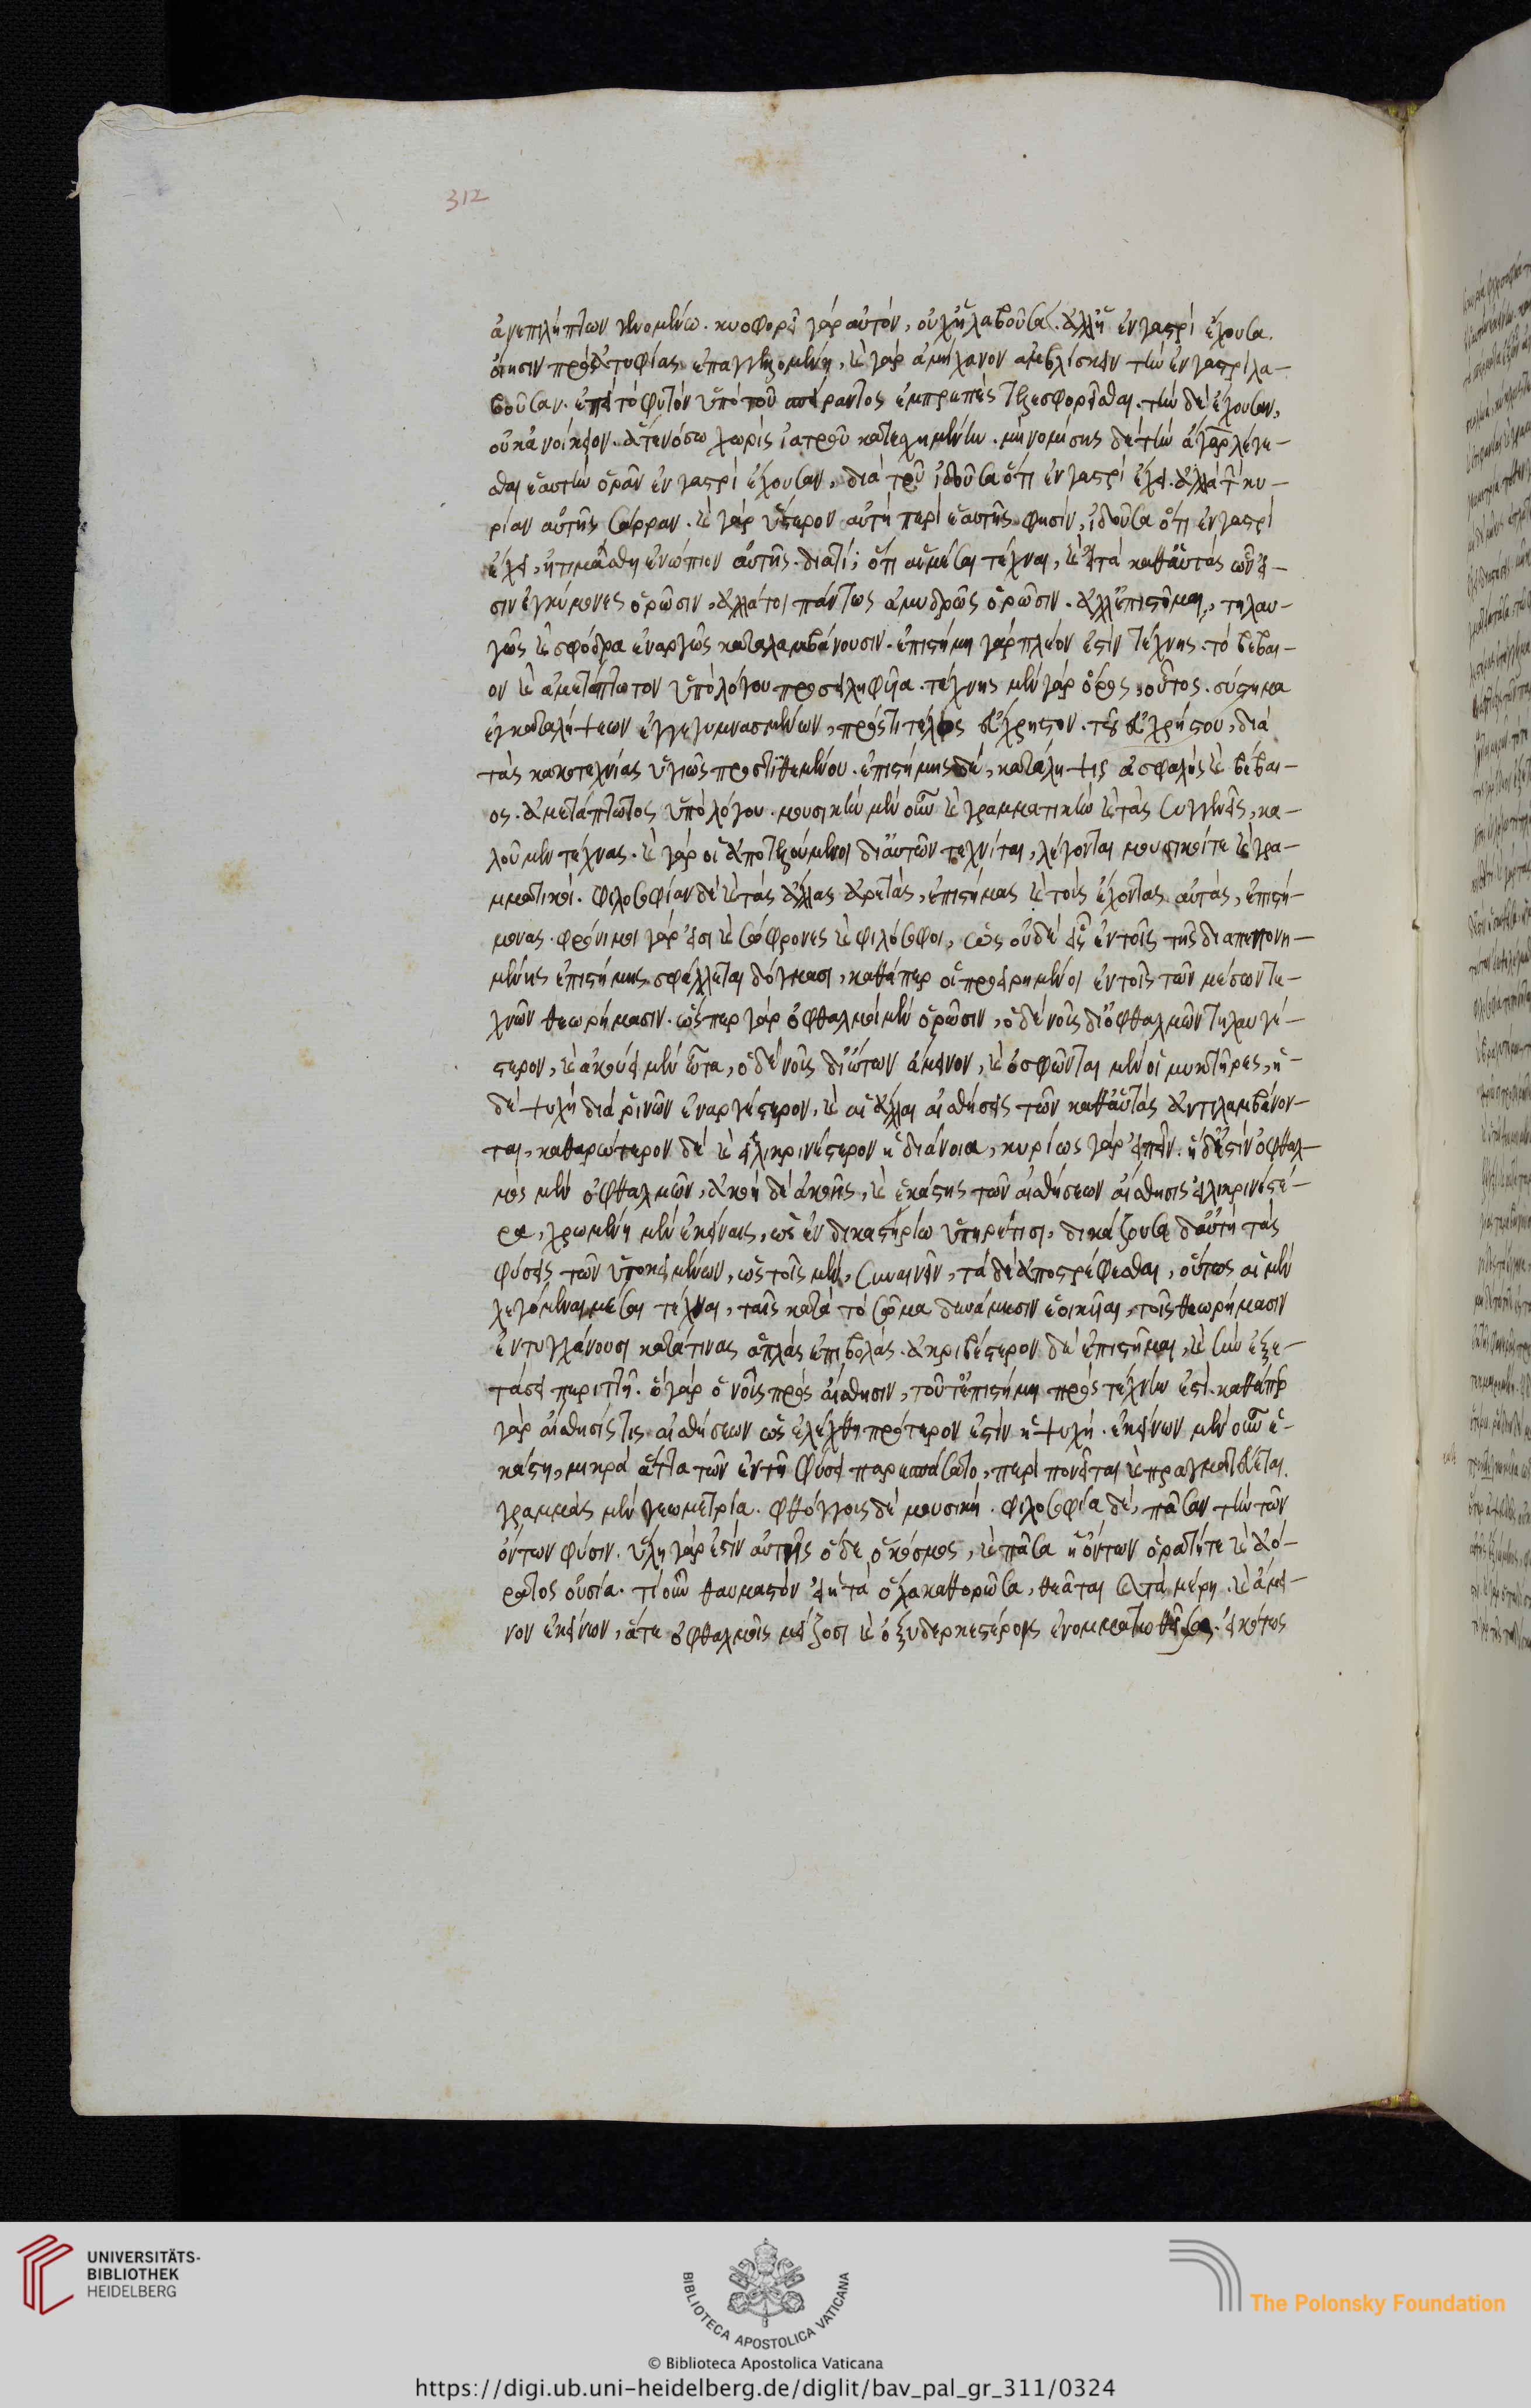 312
ἀνεπιλήπτων γενομένω. κυοφορεῖ γάρ αὐτόν, οὐχ ἡ λαβοῦσα. ἀλλ' ἡ ἐν γαστρί ἔχουσα.
οἴησιν πρό ἀτυφίας ἐπαγγελλομένη, καὶ γάρ ἀμήχανον ἀμβλίσκειν τὴν ἐν γαστρί λα-
βοῦσαν. ἐπεὶ τό φυτόν ὑπό τοῦ σπείραντος ἐμπρεπές τελεσφορεῖσθαι. τὴν δέ ἔχουσαν,
οὐκ ἀνοίκειον. ἅτε νόσω χωρίς ἰατροῦ κατεσχημένην. μή νομίσης δέ τὴν ἄγαρ λέγε-
σθαι ἑαυτὴν ὁρᾶν ἐν γαστρί ἔχουσαν, διά τοῦ ἰδοῦσα ὅτι ἐν γαστρί ἔχει. ἀλλά τὴν κυ-
ρίαν αὐτῆς σάρραν. καὶ γάρ ὕστερον αὐτή περί ἑαυτῆς φησίν, ἰδοῦσα ὅτι ἐν γαστρί
ἔχει, ἠτιμάσθη ἐνώπιον αὐτῆς. διατί; ὅτι αἱ μέσαι τέχναι, καὶ εἰ τά καθ' αὑτάς ὧν εἰ-
σιν ἐγκύμονες ὁρῶσιν, ἀλλά τοι πάντως ἀμυδρῶς ὁρῶσιν. ἀλλ' ἐπιστῆμαι, τηλαυ-
γῶς καὶ σφόδρα ἐναργῶς καταλαμβάνουσιν. ἐπιστήμη γάρ πλέον ἐστίν τέχνης. τό βέβαι-
ον καὶ ἀμετάπτωτον ὑπό λόγου προσειληφυῖα. τέχνης μὲν γάρ ὅρος, οὗτος. σύστημα
ἐγκαταλήψεων ἐγγεγυμνασμένων, πρός τι τέλος εὔχρηστον. τοῦ εὐχρήστου, διά
τάς κακοτεχνίας ὑγιῶς προστιθεμένου. ἐπιστήμης δέ, κατάληψις ἀσφαλής καὶ βέβαι-
ος. ἀμετάπτωτος ὑπό λόγου. μουσικὴν μὲν οὖν καὶ γραμματικὴν καὶ τάς συγγενεῖς, κα-
λοῦμεν τέχνας. καὶ γάρ οἱ ἀποτελούμενοι δι' αὐτῶν τεχνίται, λέγονται μουσικοίτε καὶ γρα-
μματικοί. φιλοσοφίαν δέ καὶ τάς ἄλλας ἀρετάς, ἐπιστήμας καὶ τούς ἔχοντας αὐτάς, ἐπιστή-
μονας. φρόνιμοι γάρ εἰσι καὶ σώφρονες καὶ φιλόσοφοι, ὧς οὐδέ εἷς ἐν τοῖς τῆς διαπεπονη-
μένης ἐπιστήμης σφάλλεται δόγμασι, καθάπερ οἱ προειρημένοι ἐν τοῖς τῶν μέσων τε-
χνῶν θεωρήμασιν. ὥσπερ γάρ ὀφθαλμοί μὲν ὁρῶσιν, ὁ δέ νοῦς δι' ὀφθαλμῶν τηλαυγέ-
στερον, καὶ ἀκούει μὲν ὦτα, ὁ δέ νοῦς δι' ὤτων ἄμεινον, καὶ ὀσφῶνται μὲν οἱ μυκτῆρες, ἡ
δέ ψυχή διά ῥινῶν ἐναργέστερον, καὶ αἱ ἄλλαι αἰσθήσεις τῶν καθ' αὑτάς ἀντιλαμβάνον-
ται, καθαρώτερον δέ καὶ εἰλικρινέστερον ἡ διάνοια, κυρίως γάρ εἰπεῖν. ἥδ' ἐστίν ὀφθαλ-
μός μὲν ὀφθαλμῶν, ἀκοή δέ ἀκοῆς, καὶ ἑκάστης τῶν αἰσθήσεων αἴσθησις εἰλικρινεστέ-
ρα, χρωμένη μὲν ἐκείναις, ὡς ἐν δικαστηρίω ὑπηρέτισι, δικάζουσα δ' αὐτή τάς
φύσεις τῶν ὑποκειμένων, ὡς τοῖς μὲν, συναινεῖν, τά δέ ἀποστρέφεσθαι, οὕτως αἱ μὲν
λεγόμεναι μέσαι τέχναι, ταῖς κατά τό σῶμα δυνάμεσιν ἐοικυῖαι, τοῖς θεωρήμασιν
ἐντυγχάνουσι κατά τινας ἁπλάς ἐπιβολάς. ἀκριβέστερον δέ ἐπιστῆμαι, καὶ σὺν ἐξε-
τάσει περιττῆ. ὃ γάρ ὁ νοῦς πρός αἴσθησιν, τοῦτ' ἐπιστήμη πρός τέχνην ἐστί. καθάπερ
γάρ αἴσθησίς τις αἰσθήσεων ὡς ἐλέχθη πρότερον ἐστίν ἡ ψυχή. ἐκείνων μὲν οὖν ἑ-
κάστη, μικρά ἄττα τῶν ἐν τῆ φύσει παρεσπάσατο, περί πονεῖται καὶ πραγματεύεται.
γραμμάς μὲν γεωμετρία. φθόγγοις δέ μουσική. φιλοσοφία δέ, πᾶσαν τὴν τῶν
ὄντων φύσιν. ὕλη γάρ ἐστίν αὐτῆς ὅδε ὁ κόσμος, καὶ πᾶσα ἡ ὄντων ὁρατήτε καὶ ἀό-
ρατος οὐσία. τί οὖν θαυμαστόν εἰ ἡ τά ὅλα καθορῶσα, θεᾶται καὶ τά μέρη. καὶ ἄμει-
νον ἐκείνων, ἅτε ὀφθαλμοῖς μείζοσι καὶ ὀξυδερκεστέροις ἐνομματωθεῖσα. εἰκότως
UNIVERSITÄTS-
BIBLIOTHEK
HEIDELBERG
BIBLIOTECA APOSTOLICA VATICANA
The Polonsky Foundation
© Biblioteca Apostolica Vaticana
https://digi.ub.uni-heidelberg.de/diglit/bav_pal_gr_311/0324